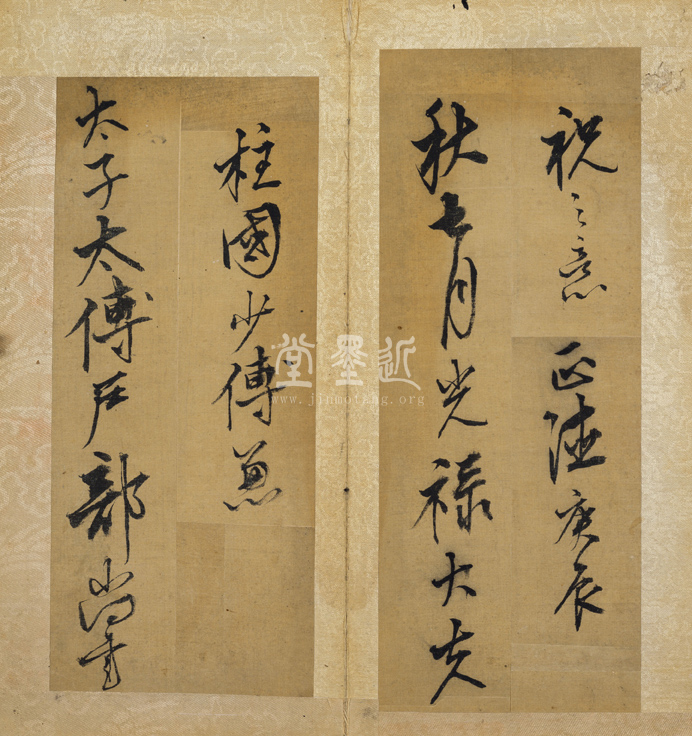 祝之意正德庚辰
秋七月光禄大夫
柱國少傅兼
太子太傅戶部尚書
近墨堂
www.jinmotang.org